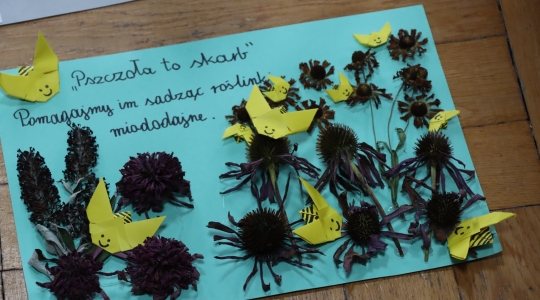 „Pszczoła to skarb"
Pomagajmy im sadząc roślinki
miododajne.